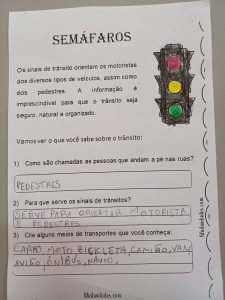 SEMÁFAROS
Os sinais de trânsito orientam os motoristas
dos diversos tipos de veículos, assim como
dos pedestres. A informação é
imprescindível para que o trânsito seja
seguro, natural e organizado.
Vamos ver o que você sabe sobre o trânsito:
1) Como são chamadas as pessoas que andam a pé nas ruas?
PEDESTRES
2) Para que serve os sinais de trânsitos?
SERVE PARA ORIENTAR MOTORISTA
E PEDESTRES
3) Cite alguns meios de transportes que você conheça:
CARRO, MOTO BICICLETA, CAMIÃO, VAN
AVIÃO, ÔNIBUS, NAVIO.